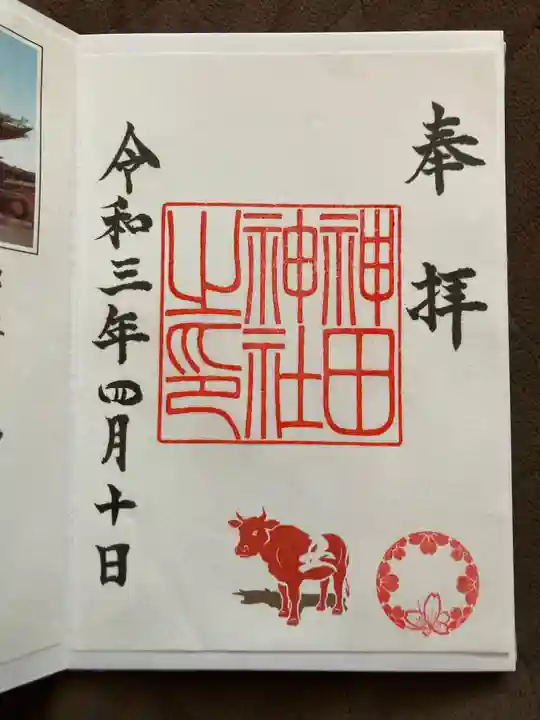 奉拝
神田
神社
之印
令和三年四月十日